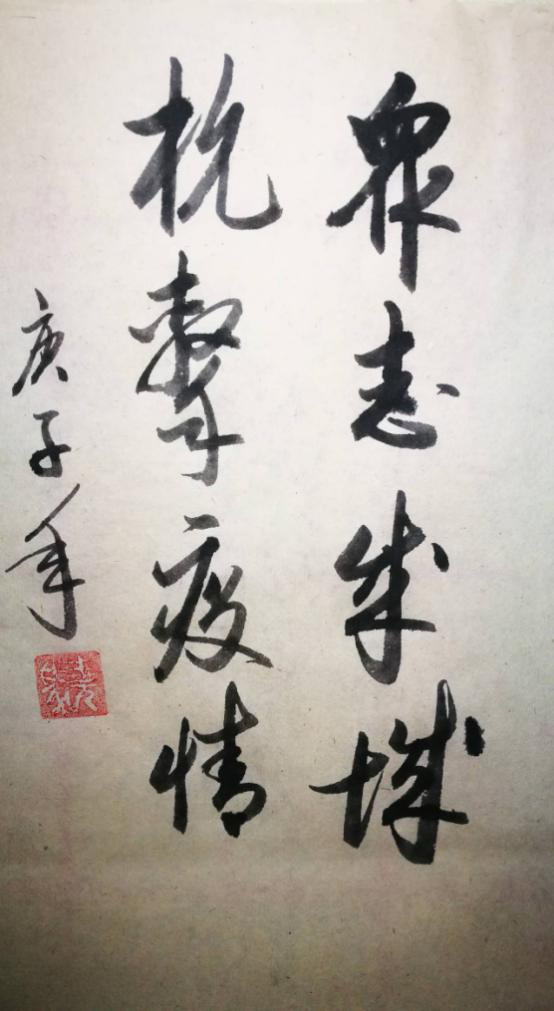 眾志成城
抗擊疫情
庚子年